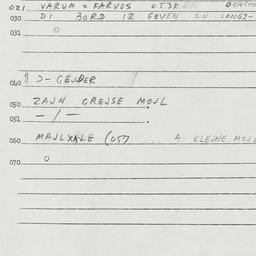 021 VARUM = FARVOS
030 DI BORD IZ GEVEN CU LANG
031 O
040 - GEJDER
050 ZAJN GREJSE MOJL
051 - / - .
060 MAJLXALE (057 A KLEJNE MOJL
070 O